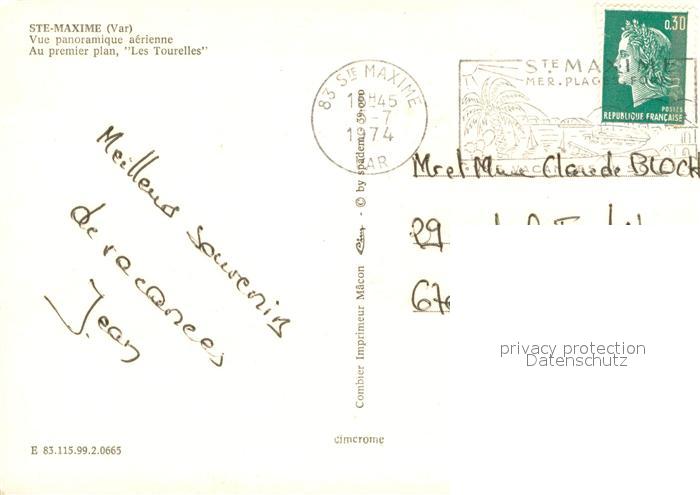 STE-MAXIME (Var)
Vue panoramique aérienne
Au premier plan, "Les Tourelles"
83 STE MAXIME
1 H45
-7
1974
VAR
STE MAXIME
MER. PLAGES
0,30
POSTES
REPUBLIQUE FRANÇAISE
Meilleurs souvenirs
de vacances
Jean
Mr et Mme Claude BLOCH
29
67
Combier Imprimeur Mâcon Cim - © by spadem
cimcrome
E 83.115.99.2.0665
privacy protection
Datenschutz